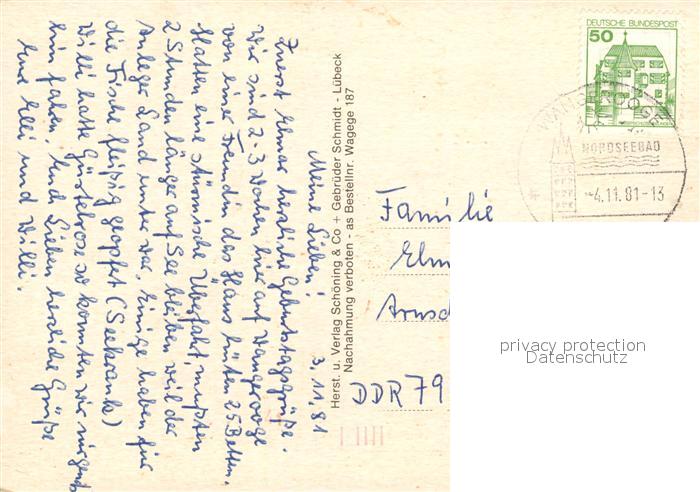 Meine Lieben! 3.11.81
Zuerst Elmar herzliche Geburtstagsgrüße.
Wir sind 2-3 Wochen hier auf Wangerooge
von einer Freundin das Haus hüten 25 Betten.
Hatten eine stürmische Überfahrt, mußten
2 Stunden länger auf See bleiben weil der
Anleger Land unter war. Einige haben für
die Fische fleißig geopfert (Seekrank)
Willi hatte Gürtelrose so konnten wir nirgends
hin fahren. Euch Lieben herzliche Grüße
Eure Elli und Willi.
Herst. u. Verlag Schöning & Co + Gebrüder Schmidt - Lübeck
Nachahmung verboten - as Bestellnr. Wagege 187
DEUTSCHE BUNDESPOST
50
WANGEROOGE
NORDSEEBAD
-4.11.81-13
Familie
Elm
Arnsd
DDR 79
privacy protection
Datenschutz